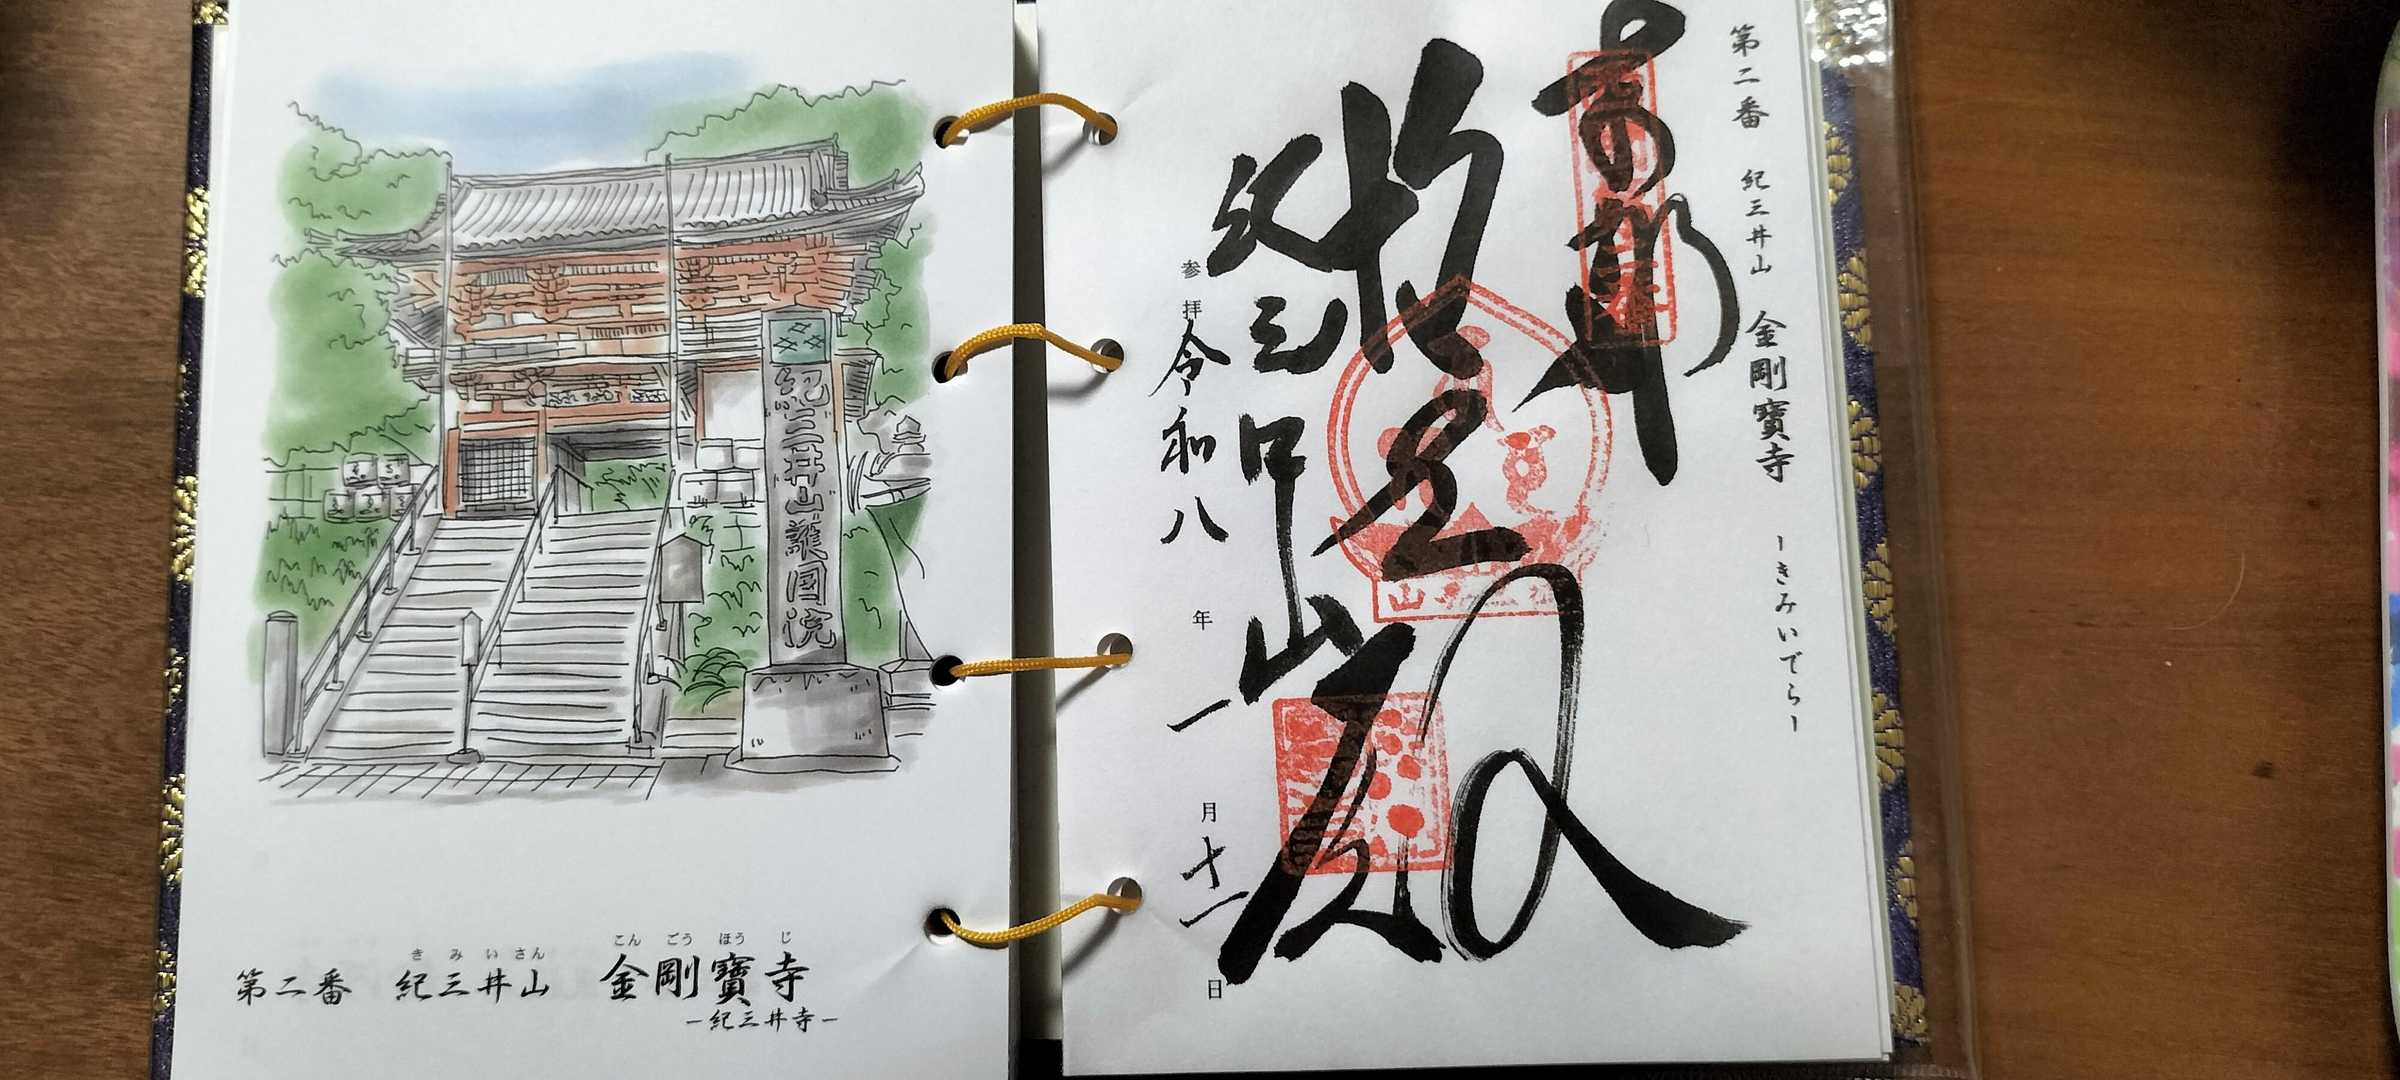 紀三井山護国院
こんごうほうじ
きみいさん
第二番 紀三井山 金剛寶寺
ー紀三井寺ー
第二番 紀三井山 金剛寶寺 ーきみいでらー
奉拝
救世殿
紀三井山
参拝 令和八年一月十一日